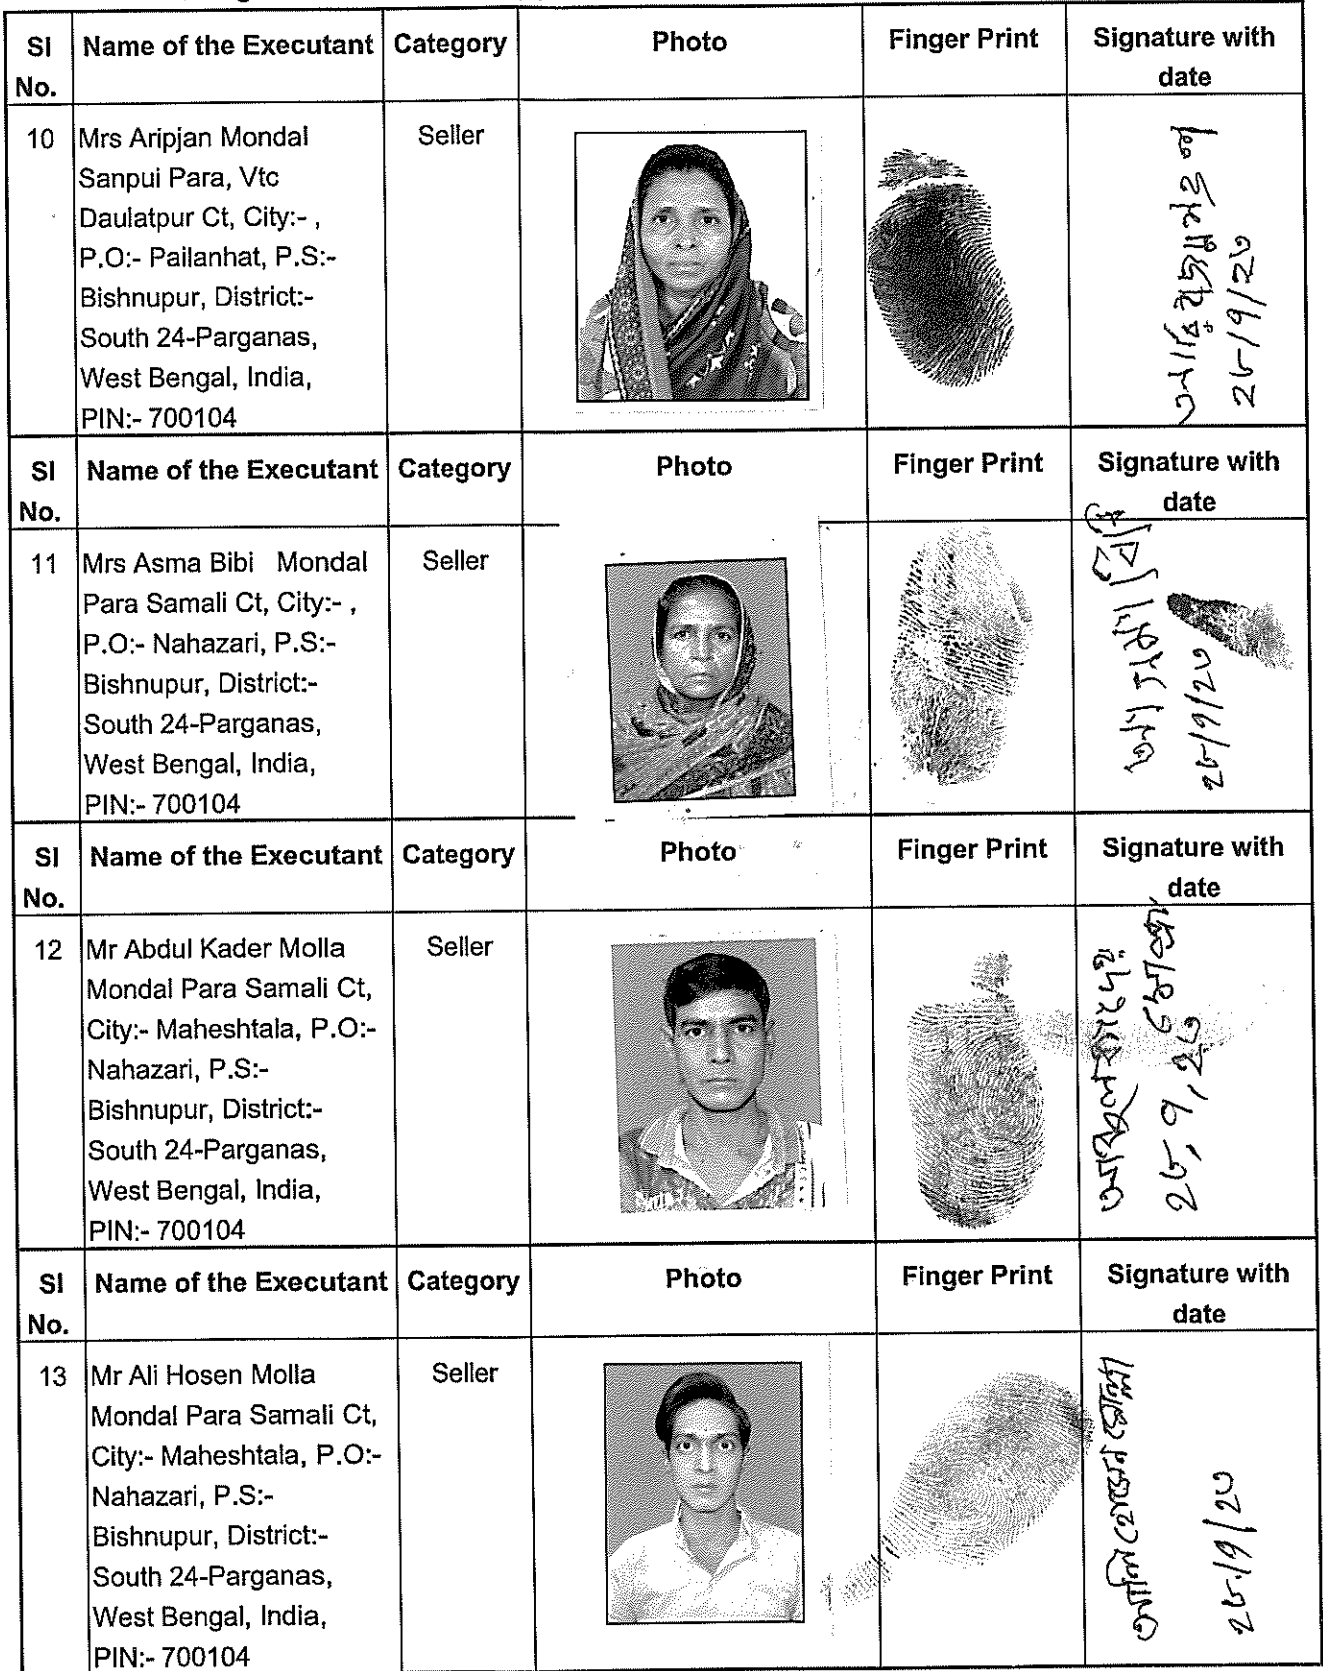 SI No. Name of the Executant Category Photo Finger Print Signature with date
10 Mrs Aripjan Mondal Seller
Sanpui Para, Vtc
Daulatpur Ct, City:- ,
P.O:- Pailanhat, P.S:-
Bishnupur, District:-
South 24-Parganas,
West Bengal, India,
PIN:- 700104
২৮/৭/২৩
SI No. Name of the Executant Category Photo Finger Print Signature with date
11 Mrs Asma Bibi Mondal Seller
Para Samali Ct, City:- ,
P.O:- Nahazari, P.S:-
Bishnupur, District:-
South 24-Parganas,
West Bengal, India,
PIN:- 700104
আসমা বিবি
২৮/৭/২৩
SI No. Name of the Executant Category Photo Finger Print Signature with date
12 Mr Abdul Kader Molla Seller
Mondal Para Samali Ct,
City:- Maheshtala, P.O:-
Nahazari, P.S:-
Bishnupur, District:-
South 24-Parganas,
West Bengal, India,
PIN:- 700104
২৮,৭,২৩
SI No. Name of the Executant Category Photo Finger Print Signature with date
13 Mr Ali Hosen Molla Seller
Mondal Para Samali Ct,
City:- Maheshtala, P.O:-
Nahazari, P.S:-
Bishnupur, District:-
South 24-Parganas,
West Bengal, India,
PIN:- 700104
২৮/৭/২৩